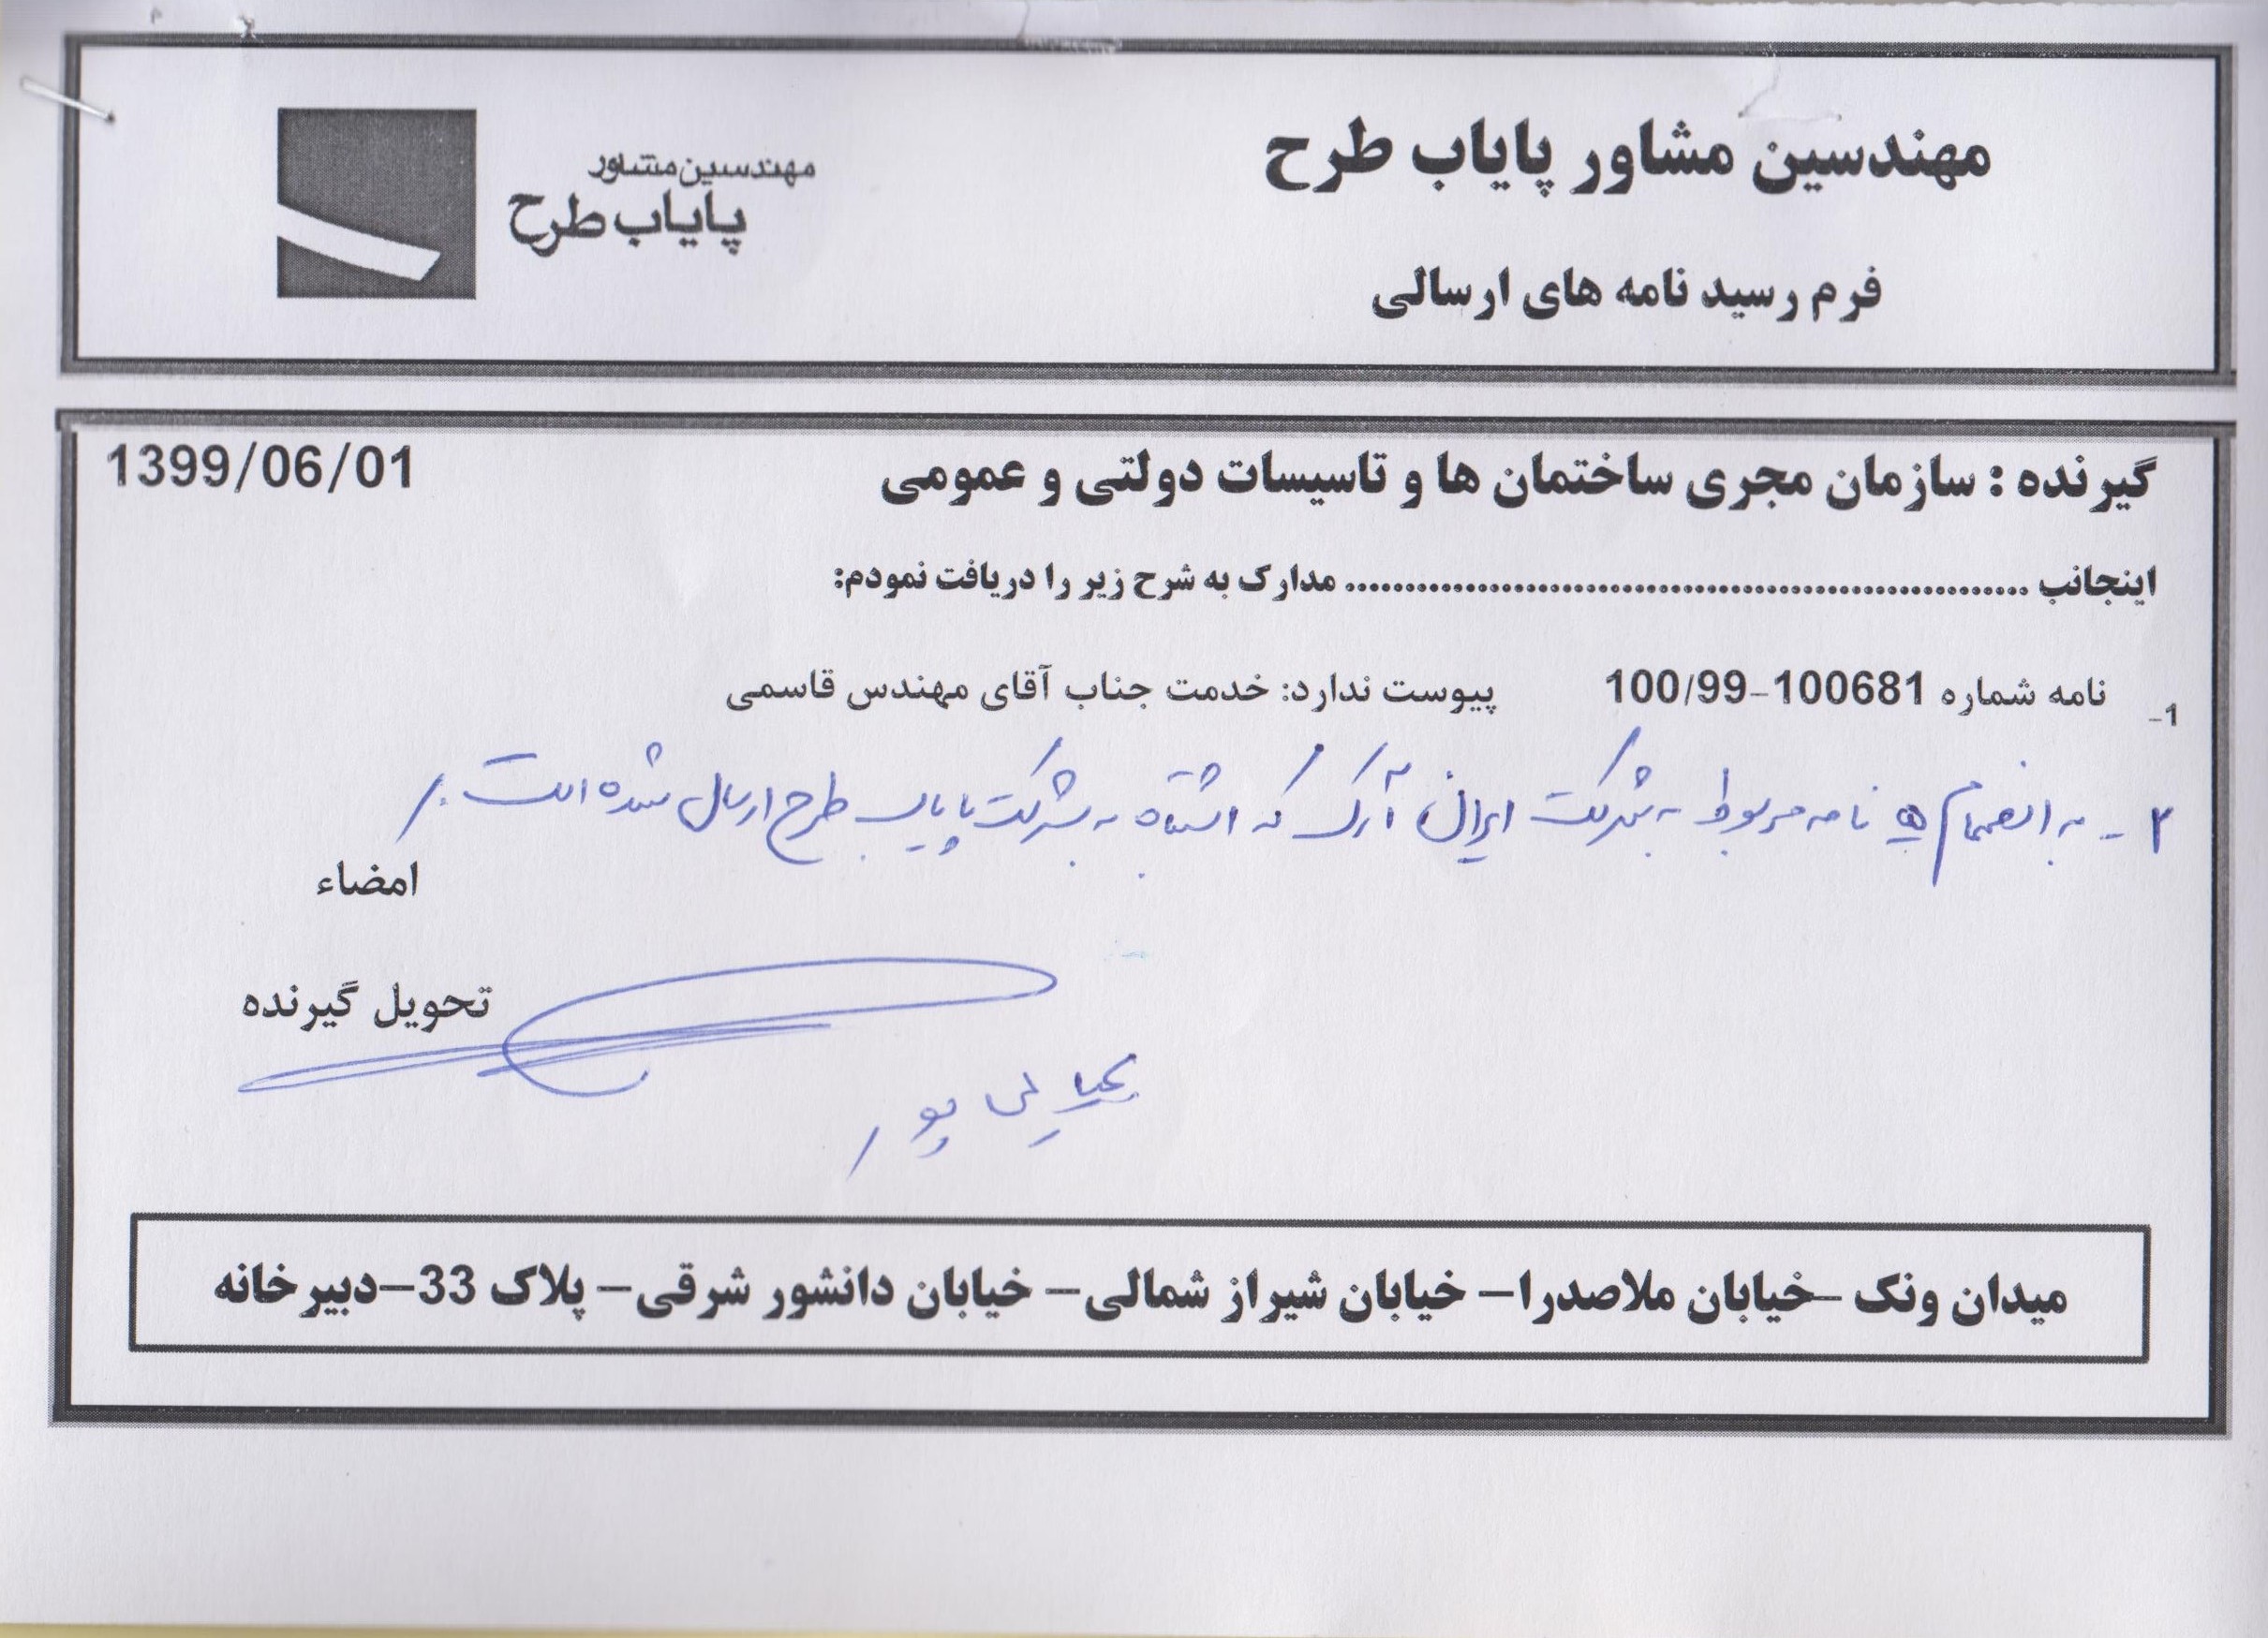 مهندسین مشاور پایاب طرح
مهندسین مشاور
پایاب طرح
فرم رسید نامه های ارسالی
گیرنده : سازمان مجری ساختمان ها و تاسیسات دولتی و عمومی 1399/06/01
اینجانب ........................................................ مدارک به شرح زیر را دریافت نمودم:
1- نامه شماره 100681-100/99 پیوست ندارد: خدمت جناب آقای مهندس قاسمی
۲- به انضمام نامه مربوط به شرکت ایران آرک که اشتباه به شرکت پایاب طرح ارسال شده است.
امضاء
تحویل گیرنده
میدان ونک -خیابان ملاصدرا- خیابان شیراز شمالی- خیابان دانشور شرقی- پلاک 33-دبیرخانه